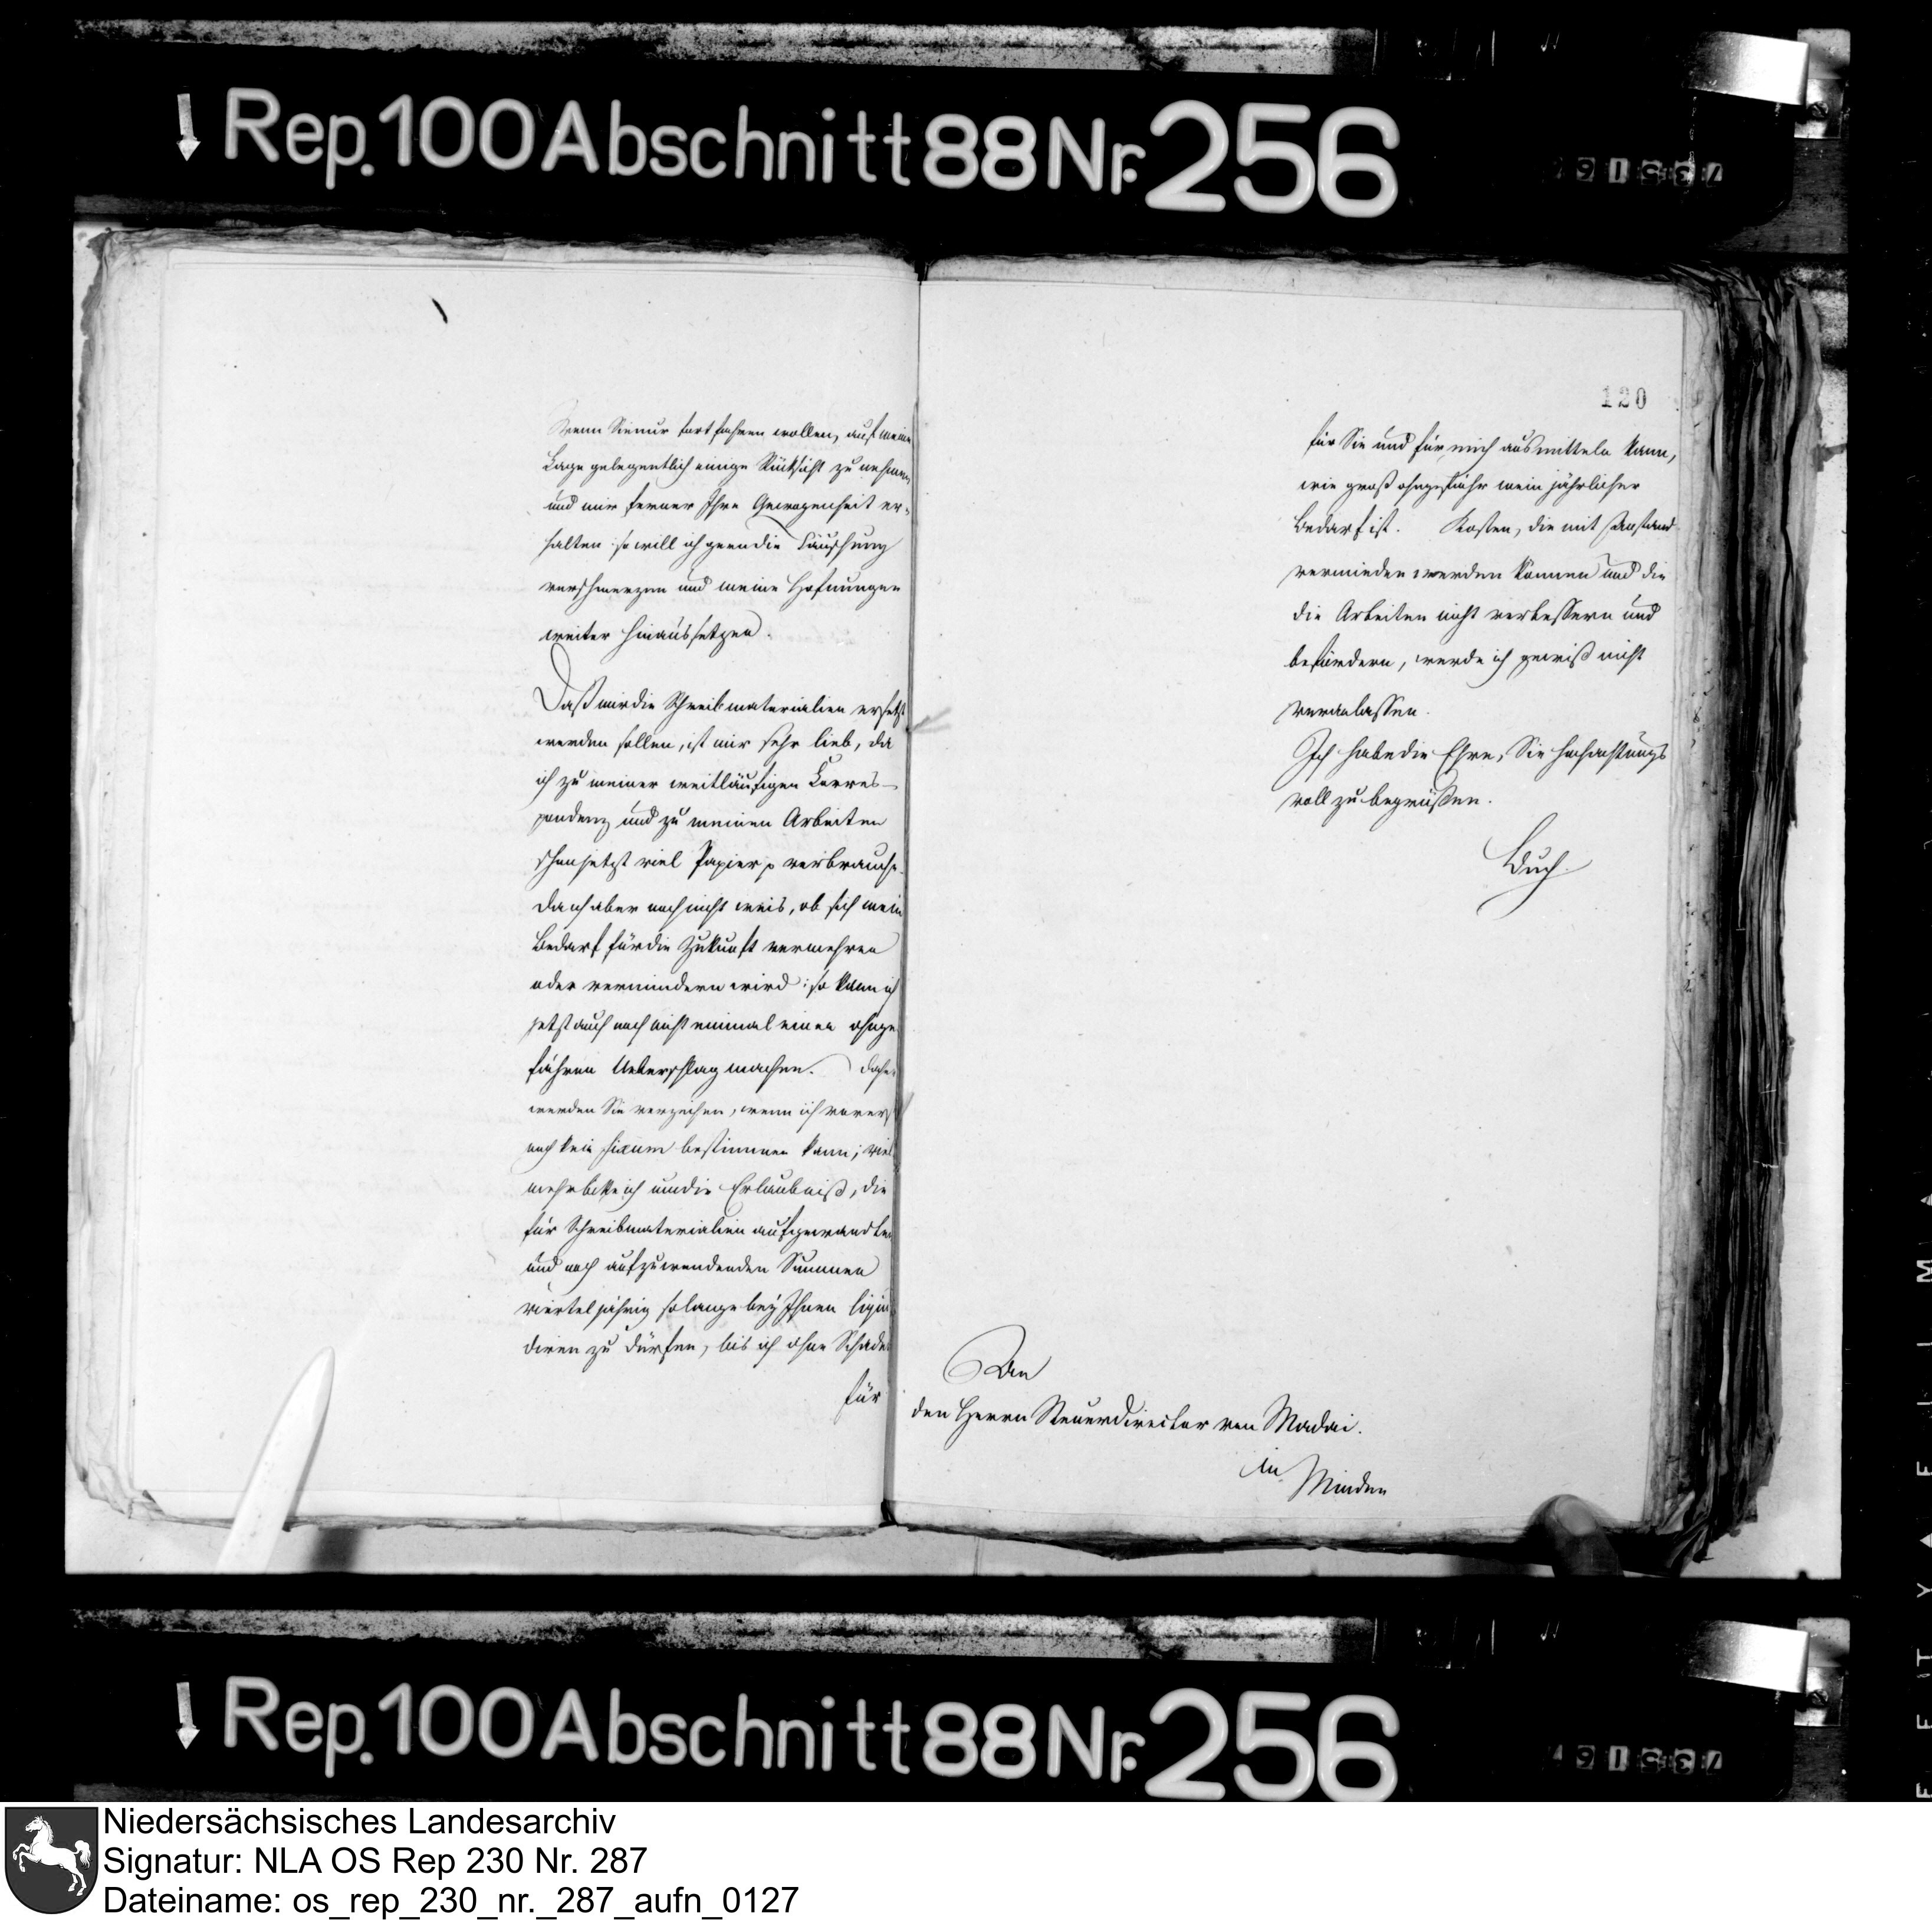 Rep. 100 Abschnitt 88 Nr. 256
Wenn Sie nur fortfahren wollen, auf meine
Lage gelegentlich einige Rücksicht zu nehmen,
und mir ferner Ihre Gewogenheit er-
halten: so will ich gern die Täuschung
verschmerzen und meine Hofnungen
weiter hinaussetzen.
Daß mir die Schreibmaterialien ersetzt
werden sollen, ist mir sehr lieb, da
ich zu meiner weitläufigen Corres-
pondenz und zu meinen Arbeiten
schon jetzt viel Papier p verbrauche.
Da ich aber noch nicht weis, ob sich mein
Bedarf für die Zukunft vermehren
oder vermindern wird: so kann ich
jetzt auch noch nicht einmal einen ohnge
fähren Ueberschlag machen. Daher
werden Sie verzeihen, wenn ich vorerst
noch kein Fixum bestimmen kann; viel
mehr bitte ich um die Erlaubniß, die
für Schreibmaterialien aufgewandten
und noch aufzuwendenden Summen
vierteljährig solange bey Ihnen liqui
diren zu dürfen, bis ich ohne Schaden
für
120
für Sie und für mich ausmitteln kann,
wie groß ohngefähr mein jährlicher
Bedarf ist. Kosten, die mit Anstand
vermieden werden können und die
die Arbeiten nicht verbessern und
befördern, werde ich gewiß nicht
veranlassen.
Ich habe die Ehre, Sie hochachtungs
voll zu begrüßen.
Buch
An
den Herrn Steuerdirector von Madai.
in Minden
Rep. 100 Abschnitt 88 Nr. 256
Niedersächsisches Landesarchiv
Signatur: NLA OS Rep 230 Nr. 287
Dateiname: os_rep_230_nr._287_aufn_0127